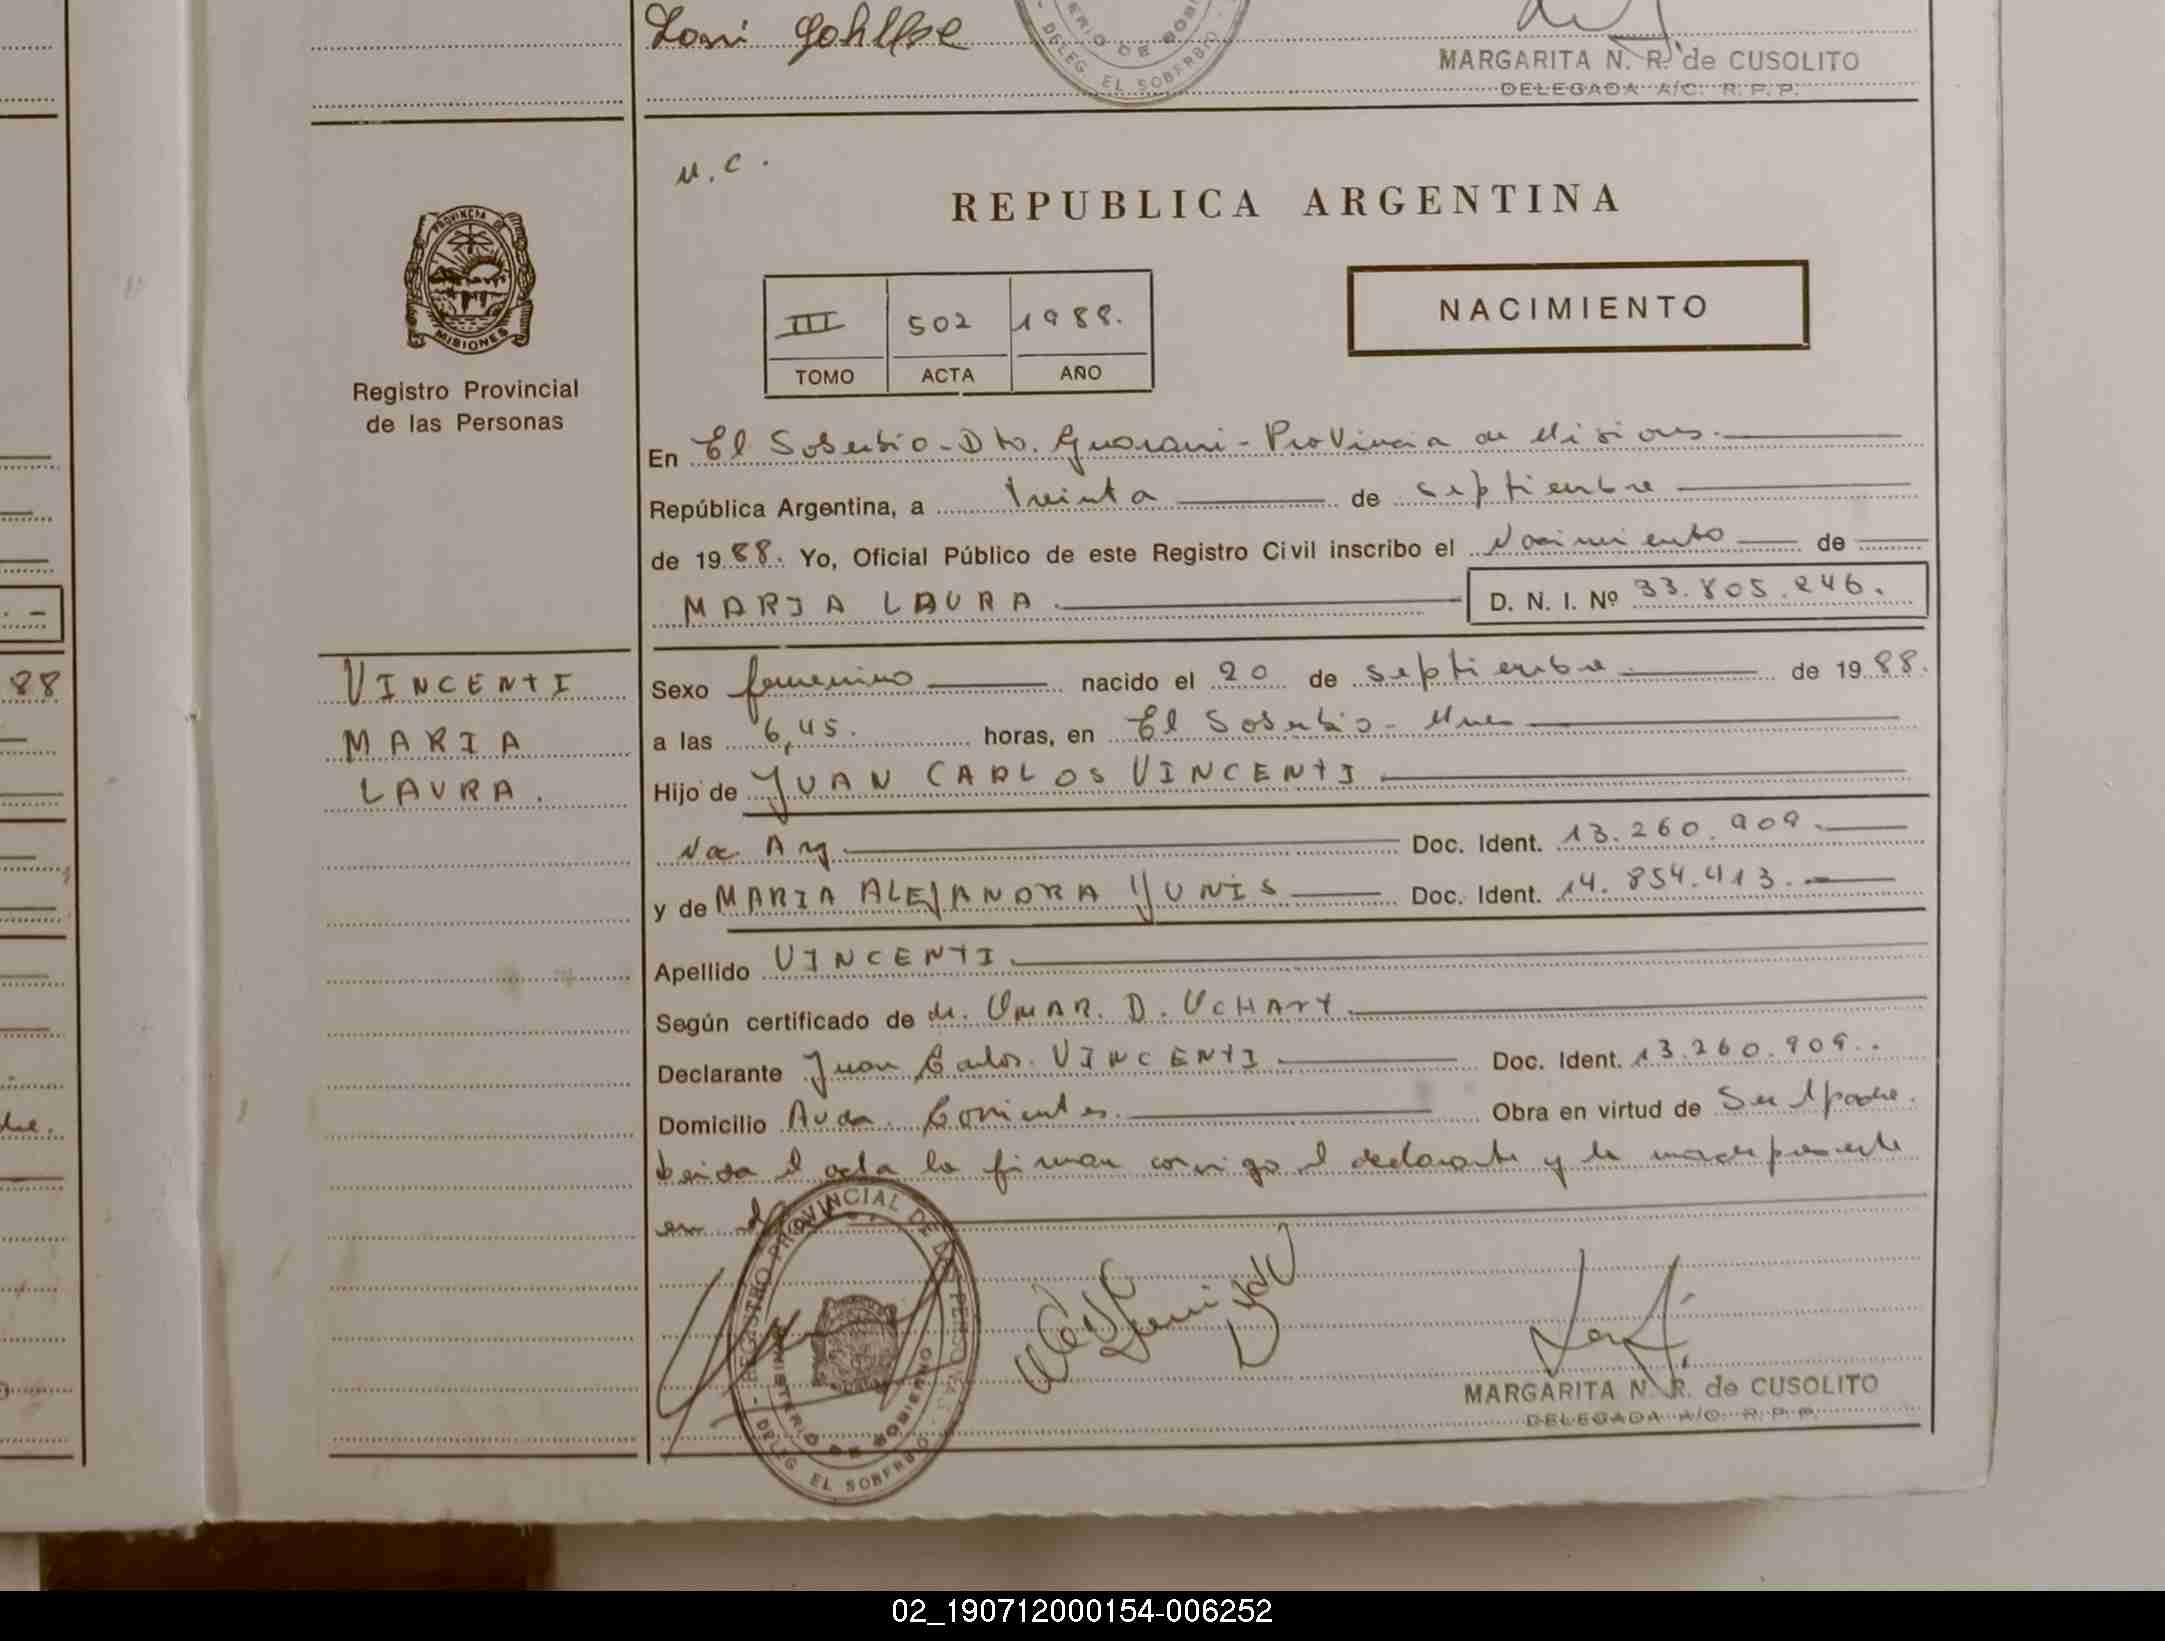 Loni Gohlke
MINISTERIO DE GOBIERNO
- DELEG. EL SOBERBIO -
MARGARITA N. R. de CUSOLITO
DELEGADA A/C. R. P. P.
N.C.
REPUBLICA ARGENTINA
PROVINCIA DE MISIONES
Registro Provincial
de las Personas
III 502 1988.
TOMO ACTA AÑO
NACIMIENTO
En El Soberbio - Dto. Guarani - Provincia de Misiones.
República Argentina, a treinta de septiembre
de 1988. Yo, Oficial Público de este Registro Civil inscribo el Nacimiento de
MARIA LAURA D. N. I. Nº 33.805.246.
88
VINCENTI
MARIA
LAURA.
Sexo femenino nacido el 20 de septiembre de 1988.
a las 6,45. horas, en El Soberbio - Mnes
Hijo de JUAN CARLOS VINCENTI
Nac Arg Doc. Ident. 13.260.909.
y de MARIA ALEJANDRA YUNIS Doc. Ident. 14.854.413.
Apellido VINCENTI
Según certificado de dr. OMAR. D. UCHART
Declarante Juan Carlos VINCENTI Doc. Ident. 13.260.909.
Domicilio Avda. Corrientes. Obra en virtud de Ser el padre.
Leida el acta la firman conmigo el declarante y la madre presente
en el
REGISTRO PROVINCIAL DE LAS PERSONAS
MINISTERIO DE GOBIERNO
- DELEG. EL SOBERBIO -
MARGARITA N. R. de CUSOLITO
DELEGADA A/C. R. P. P.
02_190712000154-006252